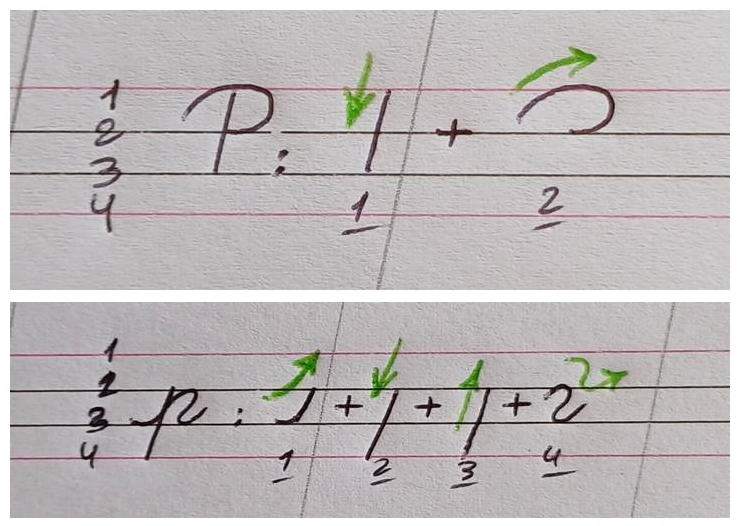 1
2 P: +
3
4 1 2
1
2
3 p: + + +
4 1 2 3 4